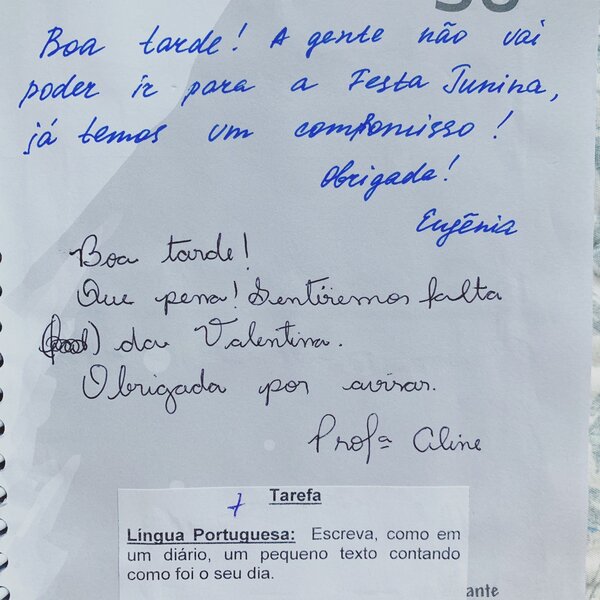 Boa tarde! A gente não vai
poder ir para a Festa Junina,
já temos um compromisso!
Obrigada!
Eugênia
Boa tarde!
Que pena! Sentiremos falta
da Valentina.
Obrigada por avisar.
Profª Aline
Tarefa
Língua Portuguesa: Escreva, como em
um diário, um pequeno texto contando
como foi o seu dia.
ante